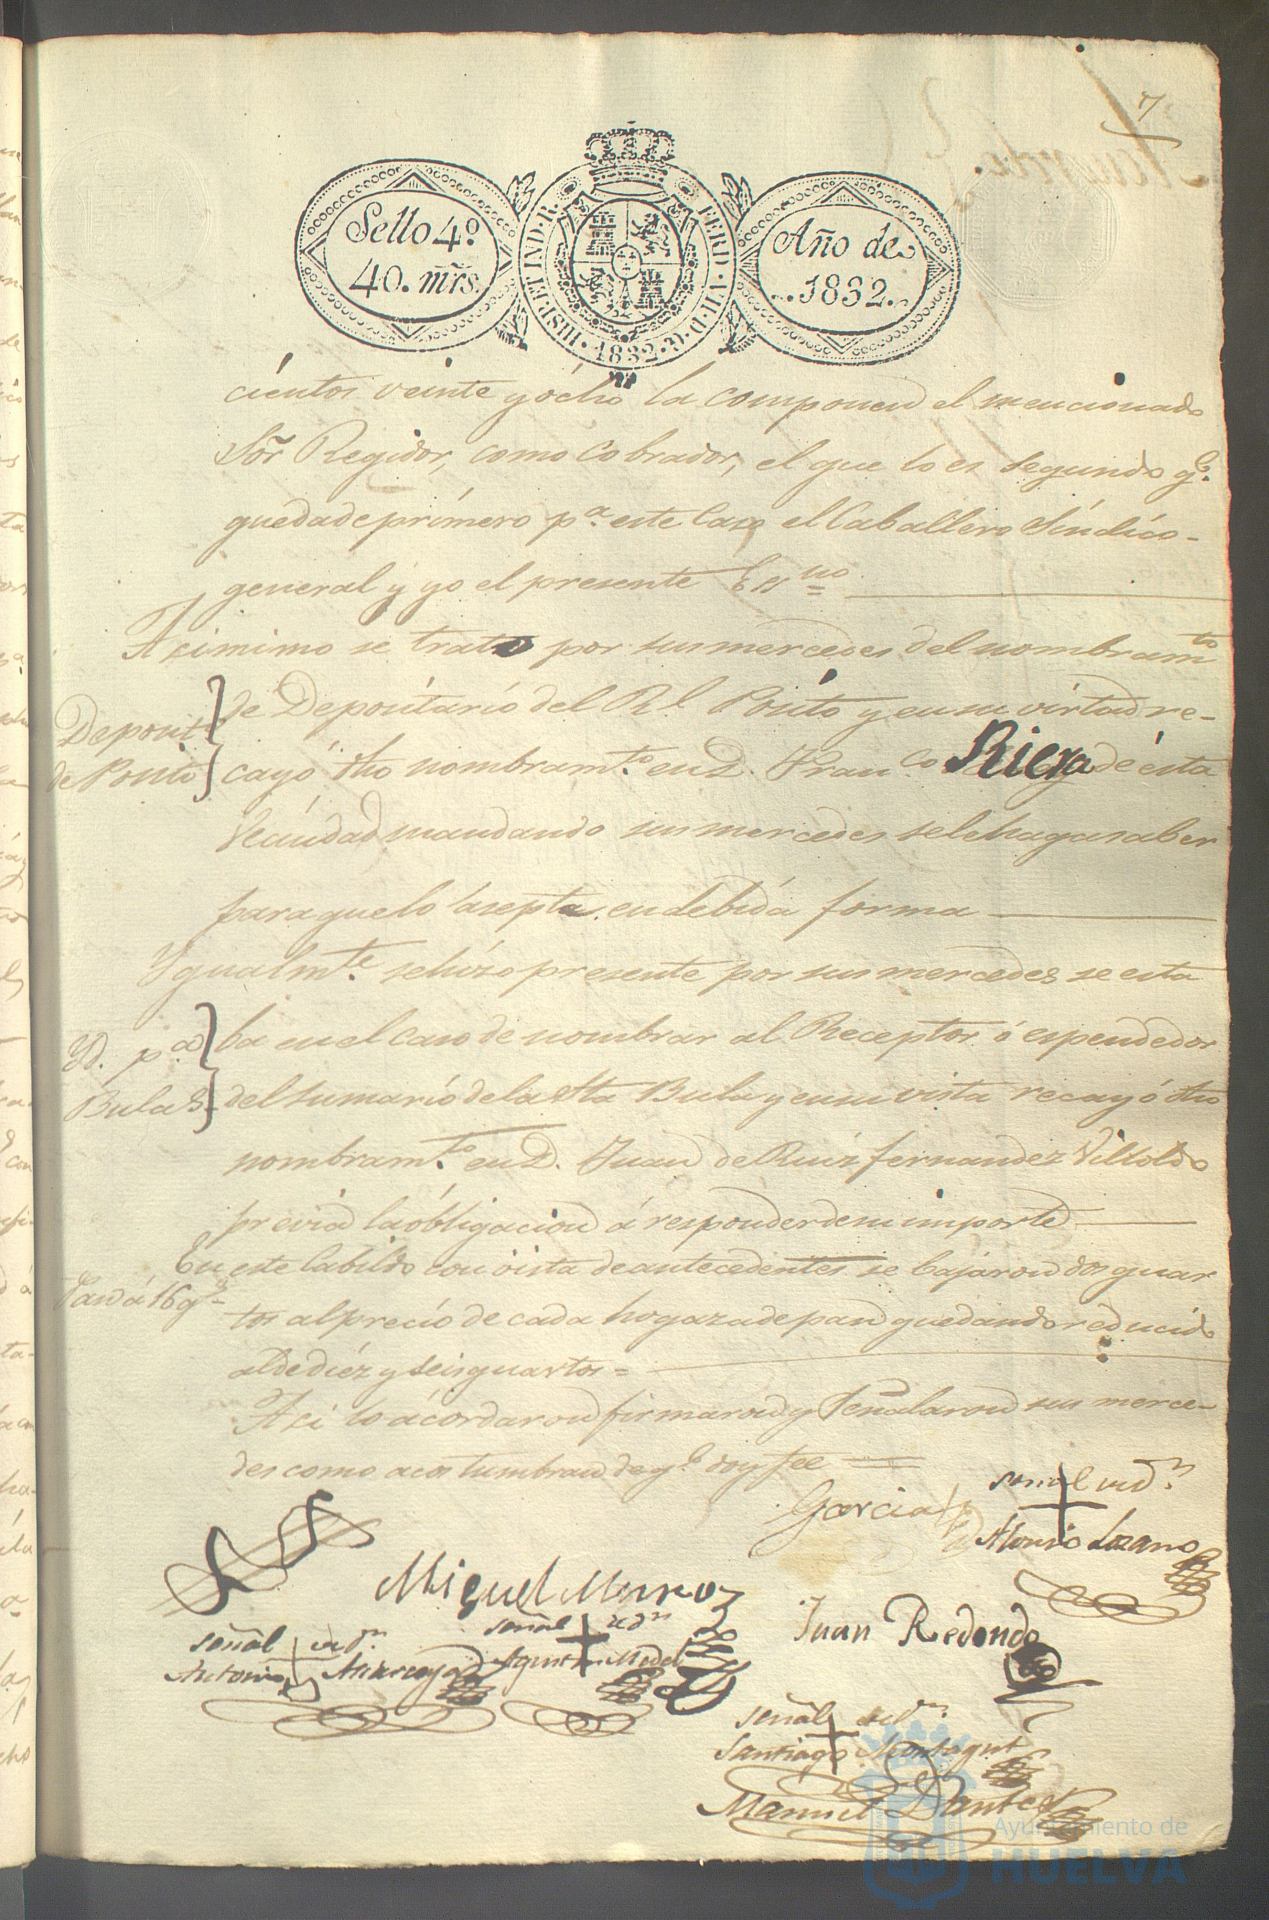 7
Sello 4º
40. mrs.
HISP. ET IND. R. FERD. VII. D. G. 1832
Año de
1832.
cientos veinte y ócho la componen el mencionado
Sõr Regidor, como Cobrador, el que lo es segundo qe.
queda de primero pa. este Caso el Caballero Sindico-
general y yo el presente Essno
Asimimo se trató por sus mercedes del nombramto
Deposit
de Depositario del Rl. Posito y en su virtad re-
de Posito
cayó dho nombramto. en D. Franco Riera de ésta
Vecindad mandando sus mercedes se le haga saber
para que lo ásepta en debida forma
Ygualmte. se hizo presente por sus mercedes se esta
Yd. pa
ba en el caso de nombrar al Receptor ó espendedor
Bulas
del sumario de la Sta Bula y en su vista recayó dho
nombramto. en D. Juan de Ruiz fernandez Villoldo
previa la óbligacion á responder de su importe
En este Cabildo con vista de antecedentes se bajaron dos quar
Pan á 16 qs
tos al precio de cada hogaza de pan quedando reducido
al de diéz y seis quartos =
Asi lo ácordaron firmaron y señalaron sus merce-
des como acostumbran de qe. doy fee
Garcia
señal de Dn.
Alonso Lozano
Miguel Munoz
señal de Dn.
Juan Redondo
señal de Dn.
Antonio
Agustin Medel
señal de Dn.
Santiago Montagut
Manuel
Ayuntamiento de
HUELVA